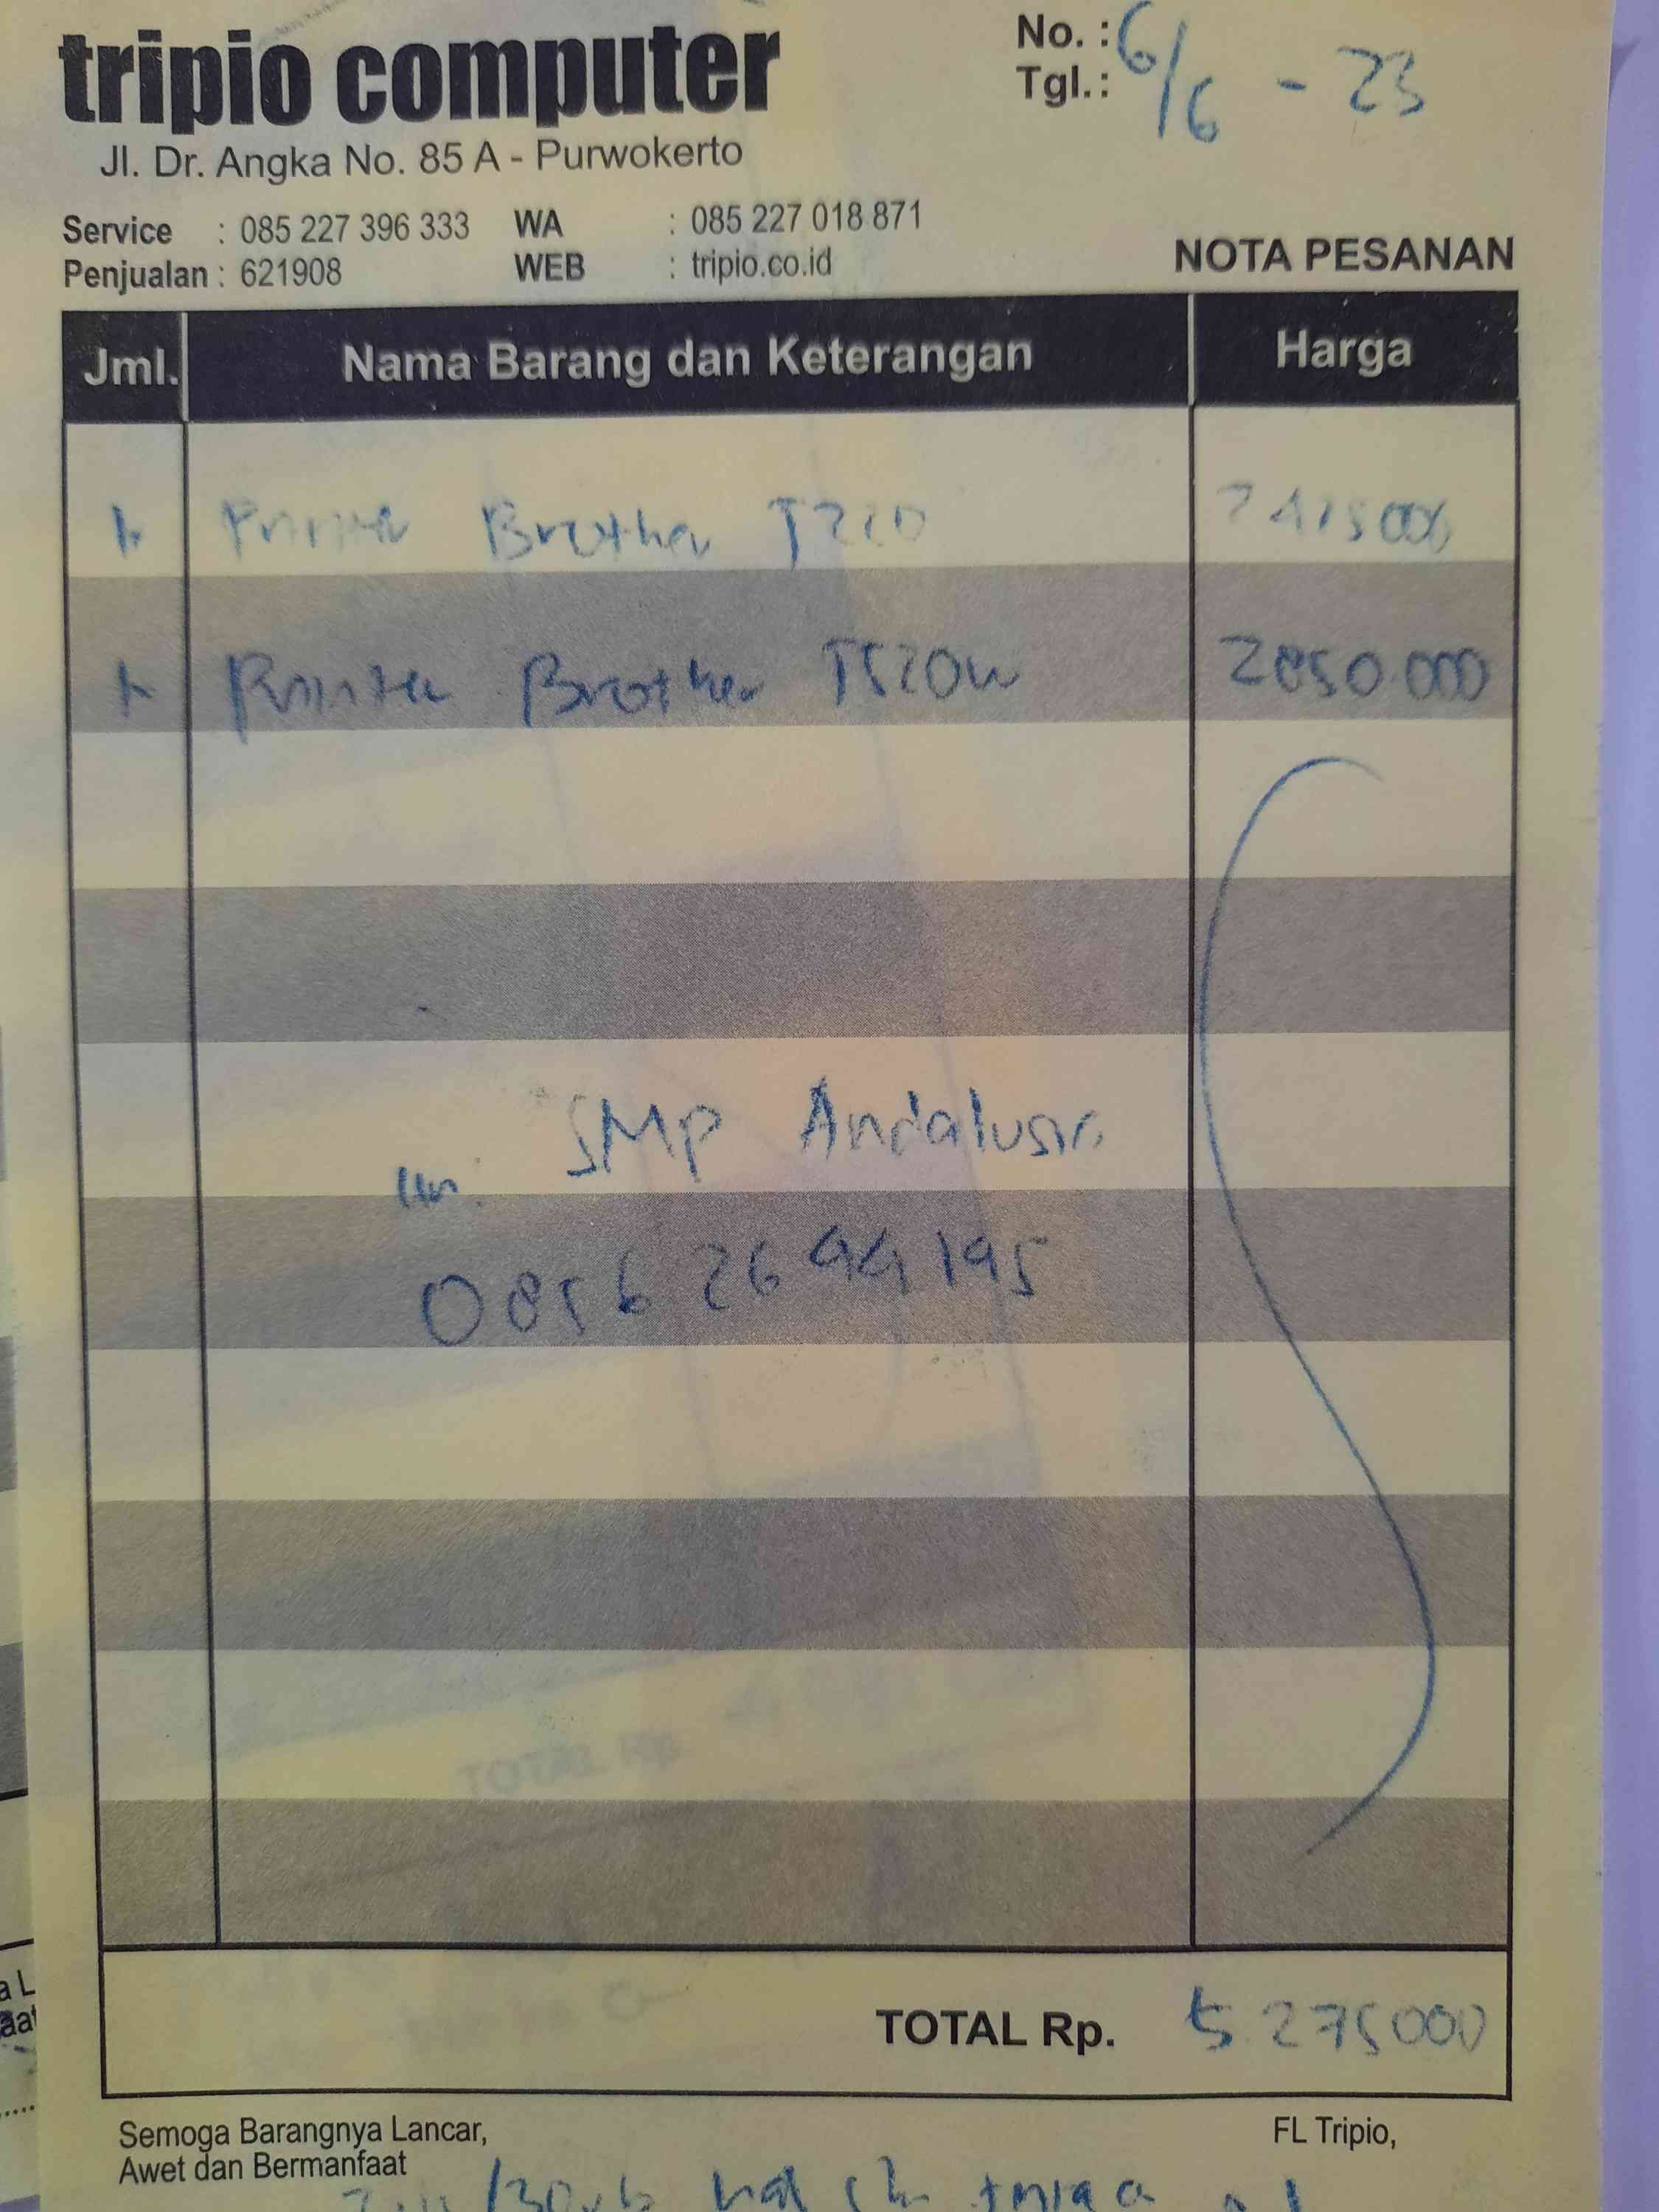 tripio computer
Jl. Dr. Angka No. 85 A - Purwokerto
No. :
Tgl. : 6/6 - 23
Service : 085 227 396 333 WA : 085 227 018 871
Penjualan : 621908 WEB : tripio.co.id
NOTA PESANAN
Jml. Nama Barang dan Keterangan Harga
1. Printer Brother T220 2425000
1. Printer Brother T520W 2850.000
SMP Andalusia
TOTAL Rp. 5.275000
Semoga Barangnya Lancar,
Awet dan Bermanfaat
FL Tripio,